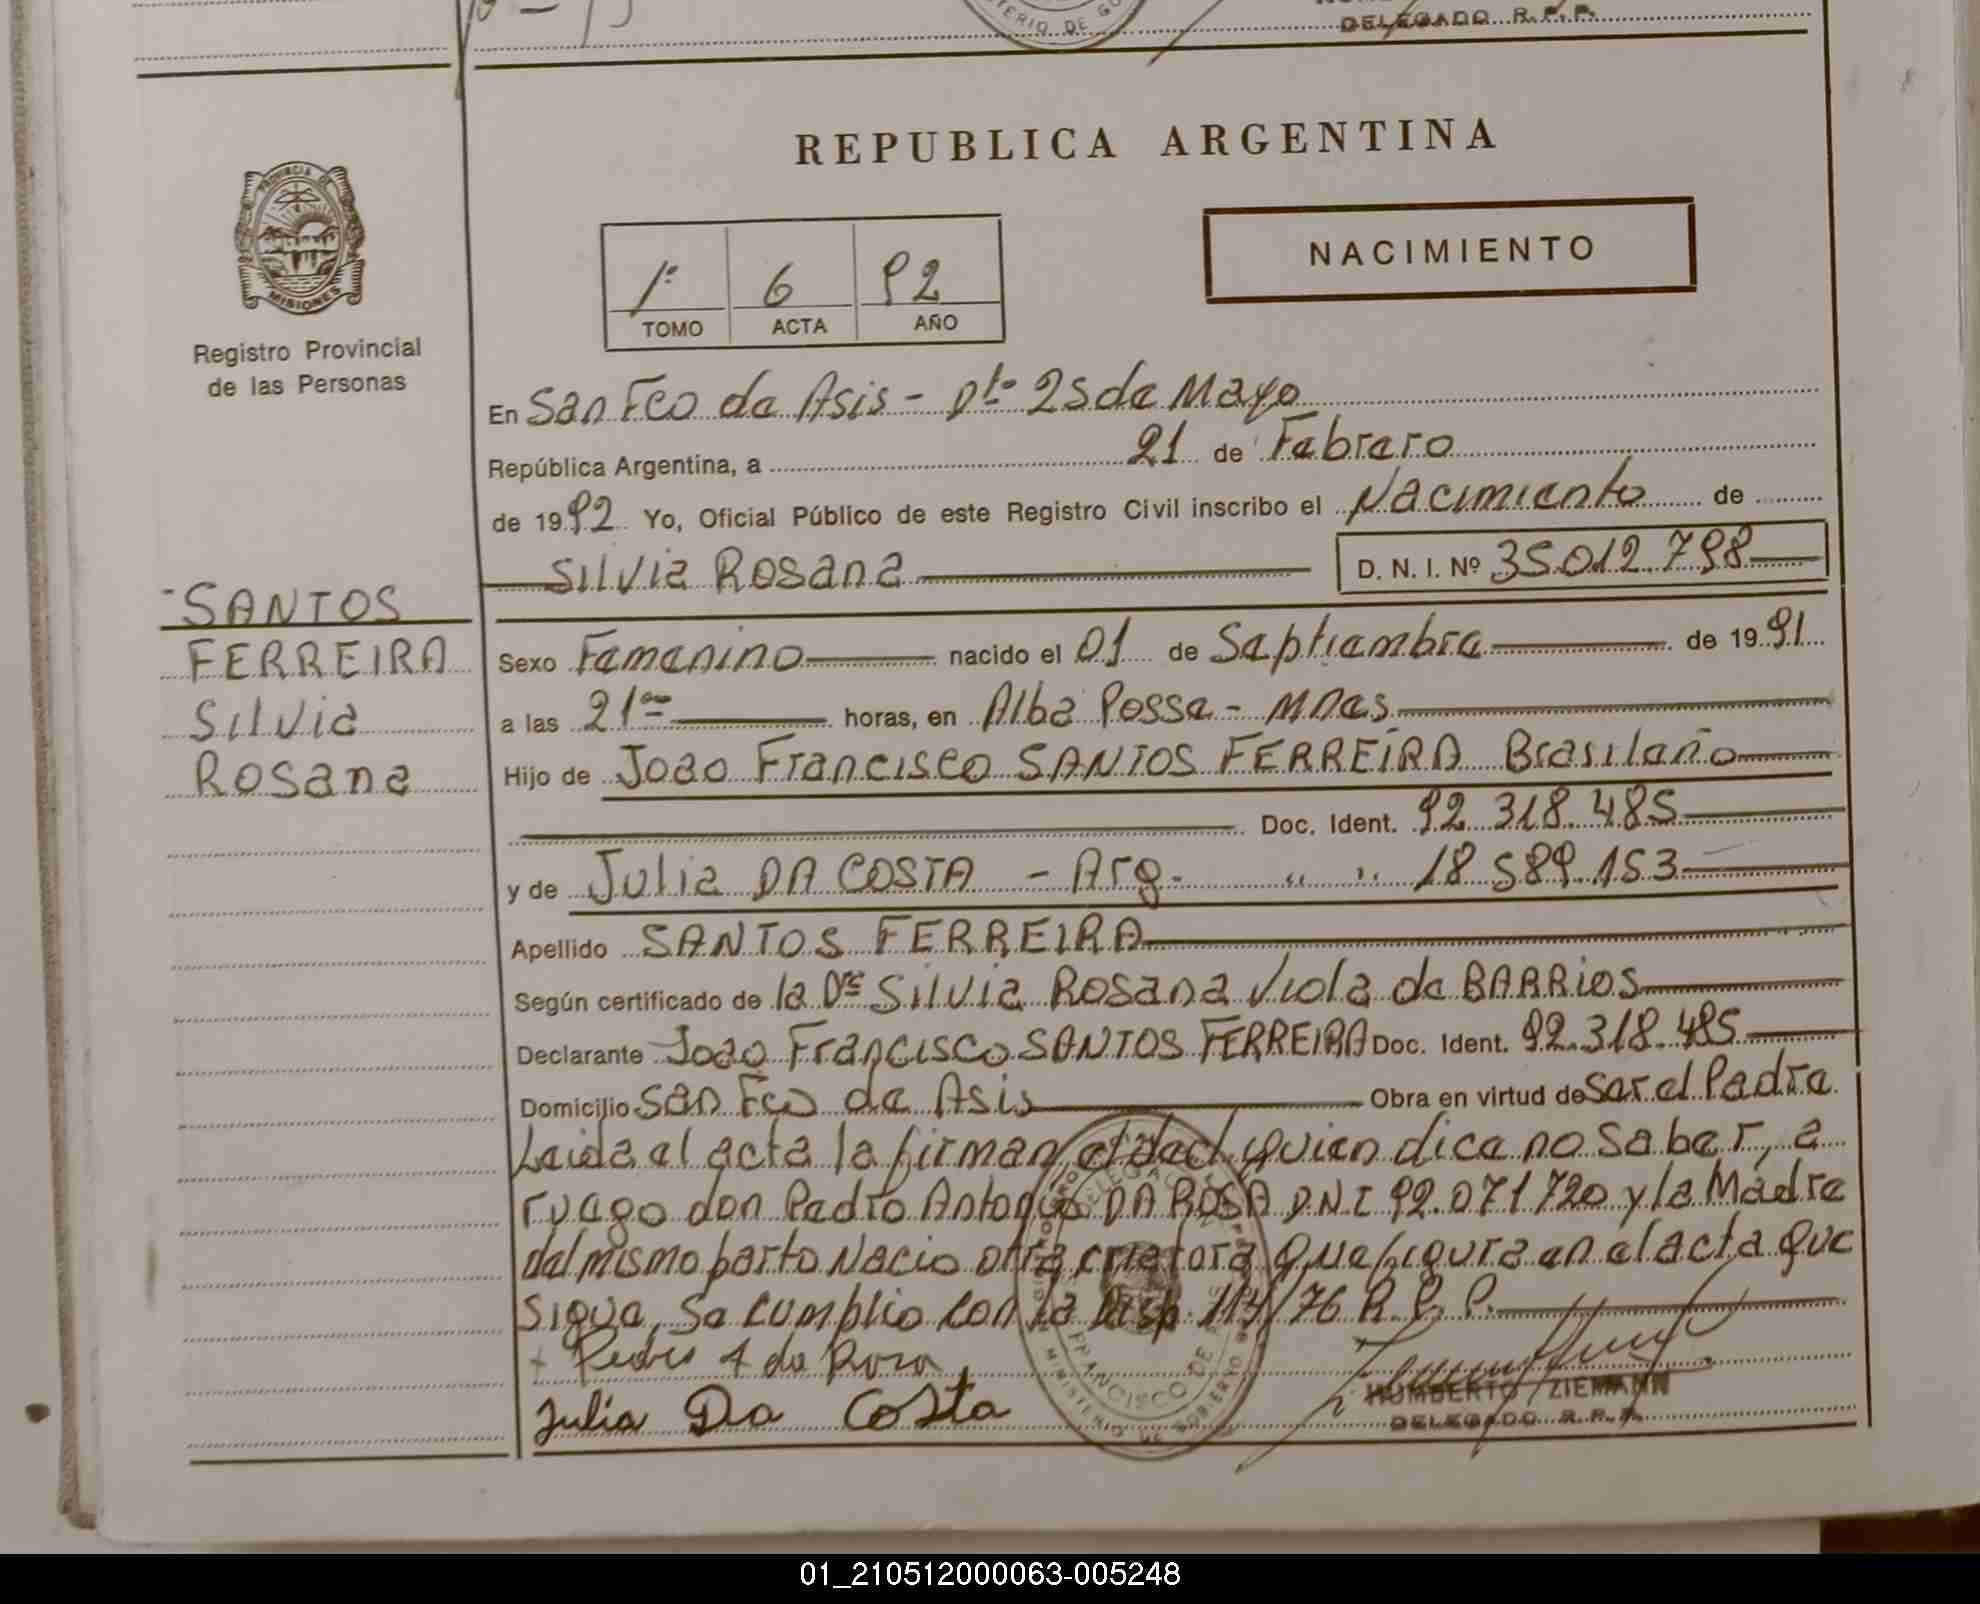 DELEGADO R.P.P.
REPUBLICA ARGENTINA
PROVINCIA DE
MISIONES
Registro Provincial
de las Personas
NACIMIENTO
1º 6 92
TOMO ACTA AÑO
En San Fco de Asis - Dto 25 de Mayo
República Argentina, a 21 de Febrero
de 1992 Yo, Oficial Público de este Registro Civil inscribo el Nacimiento de
Silvia Rosana D. N. I. Nº 35.012.798
SANTOS
FERREIRA
Silvia
Rosana
Sexo Femenino nacido el 01 de Septiembre de 1991
a las 21 horas, en Alba Posse - Mnes
Hijo de Joao Francisco SANTOS FERREIRA Brasileño
Doc. Ident. 92.318.485
y de Julia DA COSTA - Arg. " " 18.589.153
Apellido SANTOS FERREIRA
Según certificado de la Dra Silvia Rosana Viola de BARRIOS
Declarante Joao Francisco SANTOS FERREIRA Doc. Ident. 92.318.485
Domicilio San Fco de Asis Obra en virtud de ser el Padre
Leida el acta la firman, el decl. quien dice no saber, a
ruego don Pedro Antonio DA ROSA D.N.I 92.071.720 y la Madre
del mismo parto Nacio otra criatora que figura en el acta que
sigue, se cumplio con la Disp. 114/76 R.P.P.
Pedro A da Rosa
Julia Da Costa
HUMBERTO ZIEMANN
DELEGADO R.P.P.
01_210512000063-005248